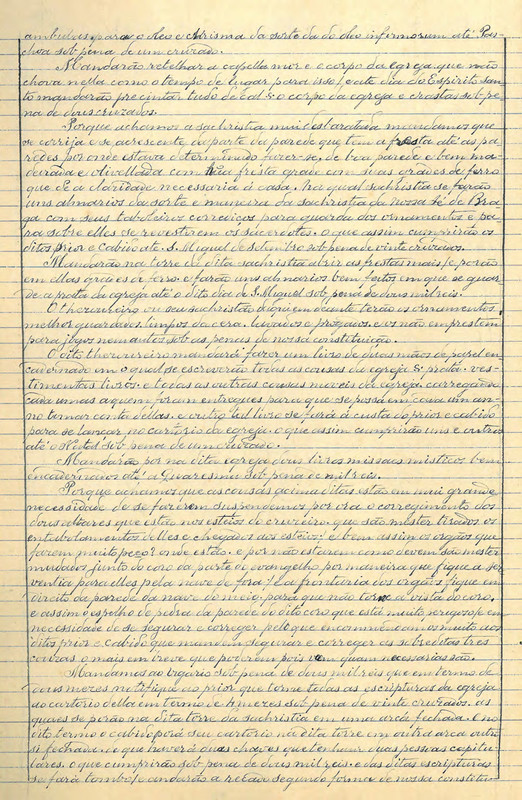 ambulas para o oleo e chrisma da sorte da do oleo infirmorum até Pas-
choa sob pena de um cruzado.
Mandarão retelhar a capella more e o corpo da egreja que não
chova nella como o tempo de lugar para isso, e até dia do Espirito san-
to mandarão precintar tudo de cal s. o corpo da egreja e crastas sob pe-
na de dous cruzados.
Porque achamos a sachristia mui desbaratada mandamos que
se corrija e se acrescente da parte da parede que tem a fresta até as pa-
redes por onde estava determinado fazer-se, de boa parede e bem ma-
deirada e olivellada com uma fresta grade com suas grades de ferro
que dê a claridade necessaria á casa. Na qual sachristia se farão
uns almarios da sorte e maneira da sachristia da nossa Sé de Bra-
ga com seus taboleiros corrediços para guarda dos ornamentos e pa-
ra sobre elles se revestirem os sacerdotes. o que assim cumprirão os
ditos prior e cabido até S. Miguel de setembro sob pena de vinte cruzados.
Mandarão na torre da dita sachristia abrir as frestas mais e porão
em ellas grades de ferro e farão uns almarios bem fortes em que se guar-
de a prata da egreja até o dito dia de S. Miguel sob pena de dous mil reis.
O thezoureiro ou seu sachristão d'aqui em deante terão os ornamentos
melhor guardados, limpos da cera, lavados e e os não emprestem
para jogos nem autos sob as penas de nossa constituição.
O dito thezoureiro mandará fazer um livro de duas mãos de papel en-
cadernado em o qual se escreverão todas as cousas da egreja s. prata, ves-
timentas livros, e todas as outras cousas moveis da egreja, carregando
cada umas a quem foram entregues para que se possa em cada um an-
no tomar conta dellas, e outro tal livro se fará á custa do prior e cabido
para se lançar no cartorio da egreja. o que assim cumprirão uns e outros
até o Natal sob pena de um cruzado.
Mandarão por na dita egreja dous livros missaes misticos bem
encadernados até a Quaresma sob pena de mil reis.
Porque achamos que as cousas acima ditas estão em mui grande
necessidade de se fazerem suspendemos por ora o corregimento dos
dous altares que estão nos esteios do cruzeiro que são mister tirados os
entabolamentos delles e chegados aos esteios: e bem assim os orgãos que
fazem muito pezo onde estão, e por não estarem como devem são mister
mudados junto do coro da parte do evangelho por maneira que fique a ser-
ventia para elles pela nave de fora e a frontaria dos orgãos fique em
direito da parede da nave do meio, para que não torne a vista do coro,
e assim o espelho de pedra da parede do dito coro que está muito perigoso e em
necessidade de se segurar e correger pelo que encommendamos muito aos
ditos prior e cabido que mandem segurar e correger as sobreditas tres
couzas o mais em breve que poderem pois vem quam necessarias são.
Mandamos ao vigario sob pena de dous mil reis que em termo de
dous mezes notifique ao prior que torne todas as escripturas da egreja
ao cartorio della em termo de 4 mezes sob pena de vinte cruzados. as
quaes se porão na dita torre da sachristia em uma arca fechada. E no
dito termo o cabido porá seu cartorio na dita torre em outra arca outro
si fechada, o que haverá duas chaves que tenham duas pessoas capitu-
lares. o que cumprirão sob pena de dous mil reis. e das ditas escripturas
se fará tombo, e andarão a recado segundo forma de nossa constitui-